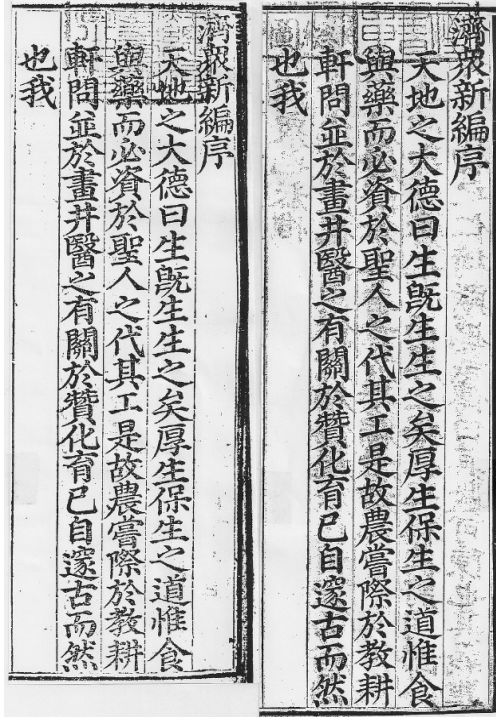 濟衆新編序
天地之大德曰生旣生生之矣厚生保生之道惟食
與藥而必資於聖人之代其工是故農嘗際於教耕
軒問並於畫井醫之有關於贊化育已自邃古而然
也我
濟衆新編序
天地之大德曰生旣生生之矣厚生保生之道惟食
與藥而必資於聖人之代其工是故農嘗際於教耕
軒問並於畫井醫之有關於贊化育已自邃古而然
也我